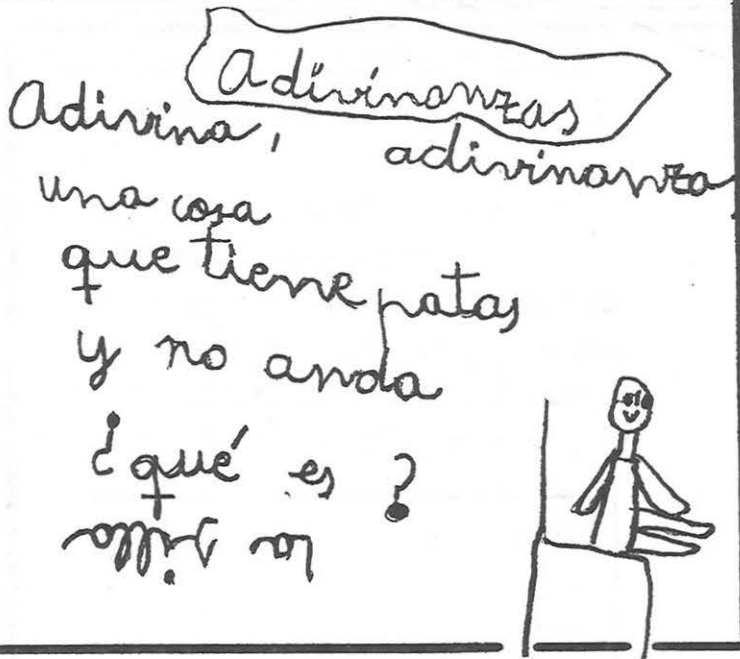 Adivinanzas
Adivina, adivinanza
una cosa
que tiene patas
y no anda
¿qué es?
La silla